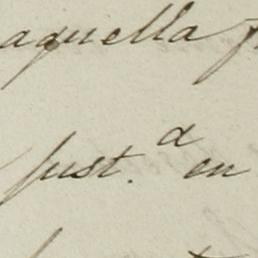 aquella
just.ª en